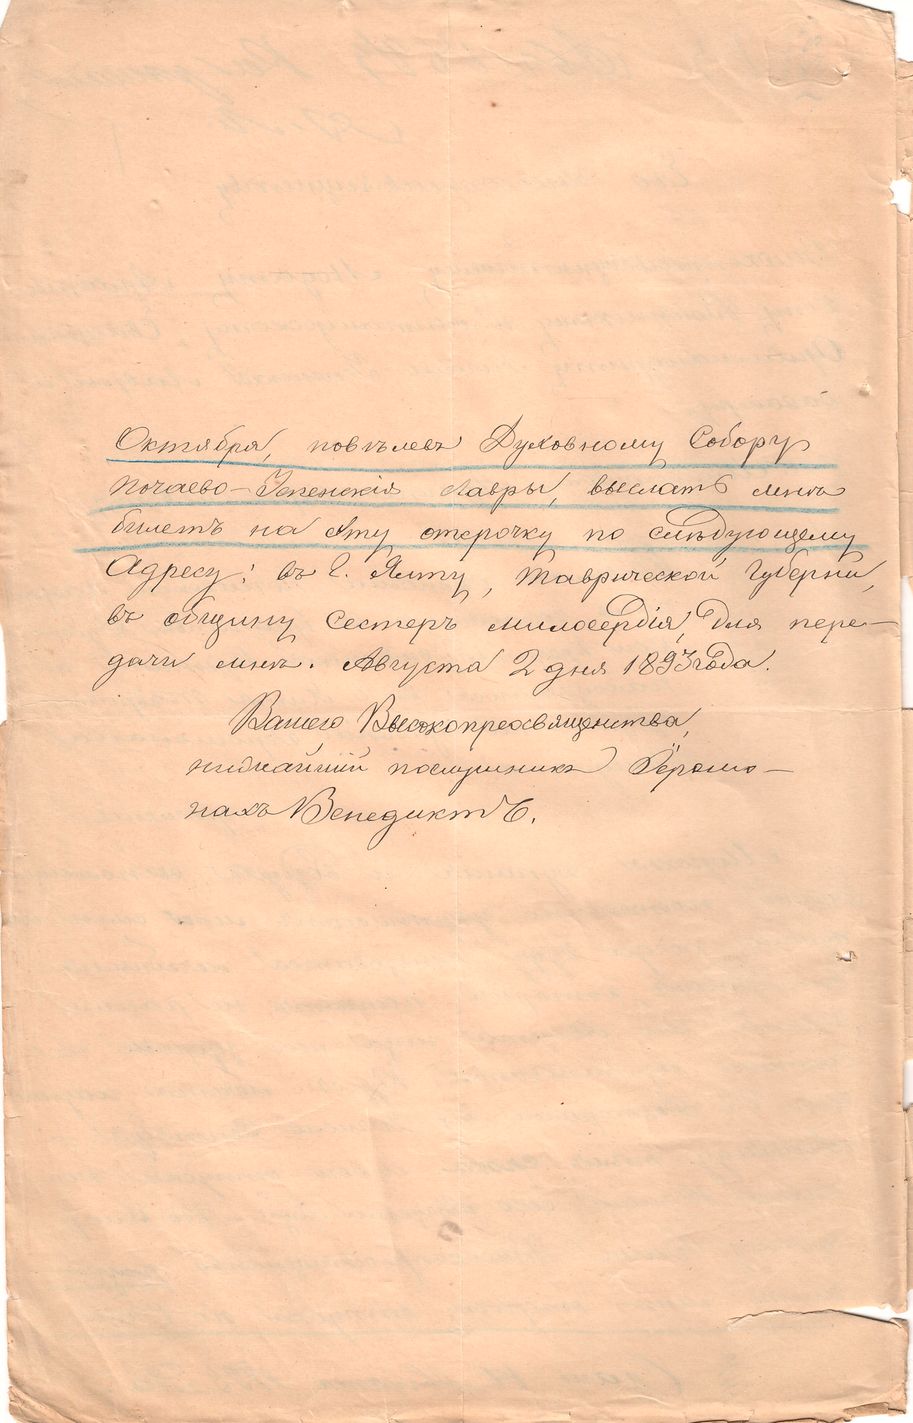 Октября, повѣлевъ Духовному Собору
Почаево-Успенскія Лавры, выслать мнѣ
билетъ на эту отсрочку по слѣдующему
Адресу: въ г. Ялту, Таврической Губерніи,
въ общину Сестеръ милосердія, для пере-
дачи мнѣ. Августа 2 дня 1893 года.
Вашего Высокопреосвященства,
нижайшій послушникъ Іеромо-
нахъ Венедиктъ.